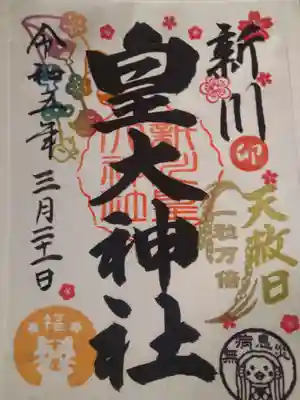 新川
卯
天赦日
一粒万倍
無病息災
皇大神社
令和五年
三月二十一日
福